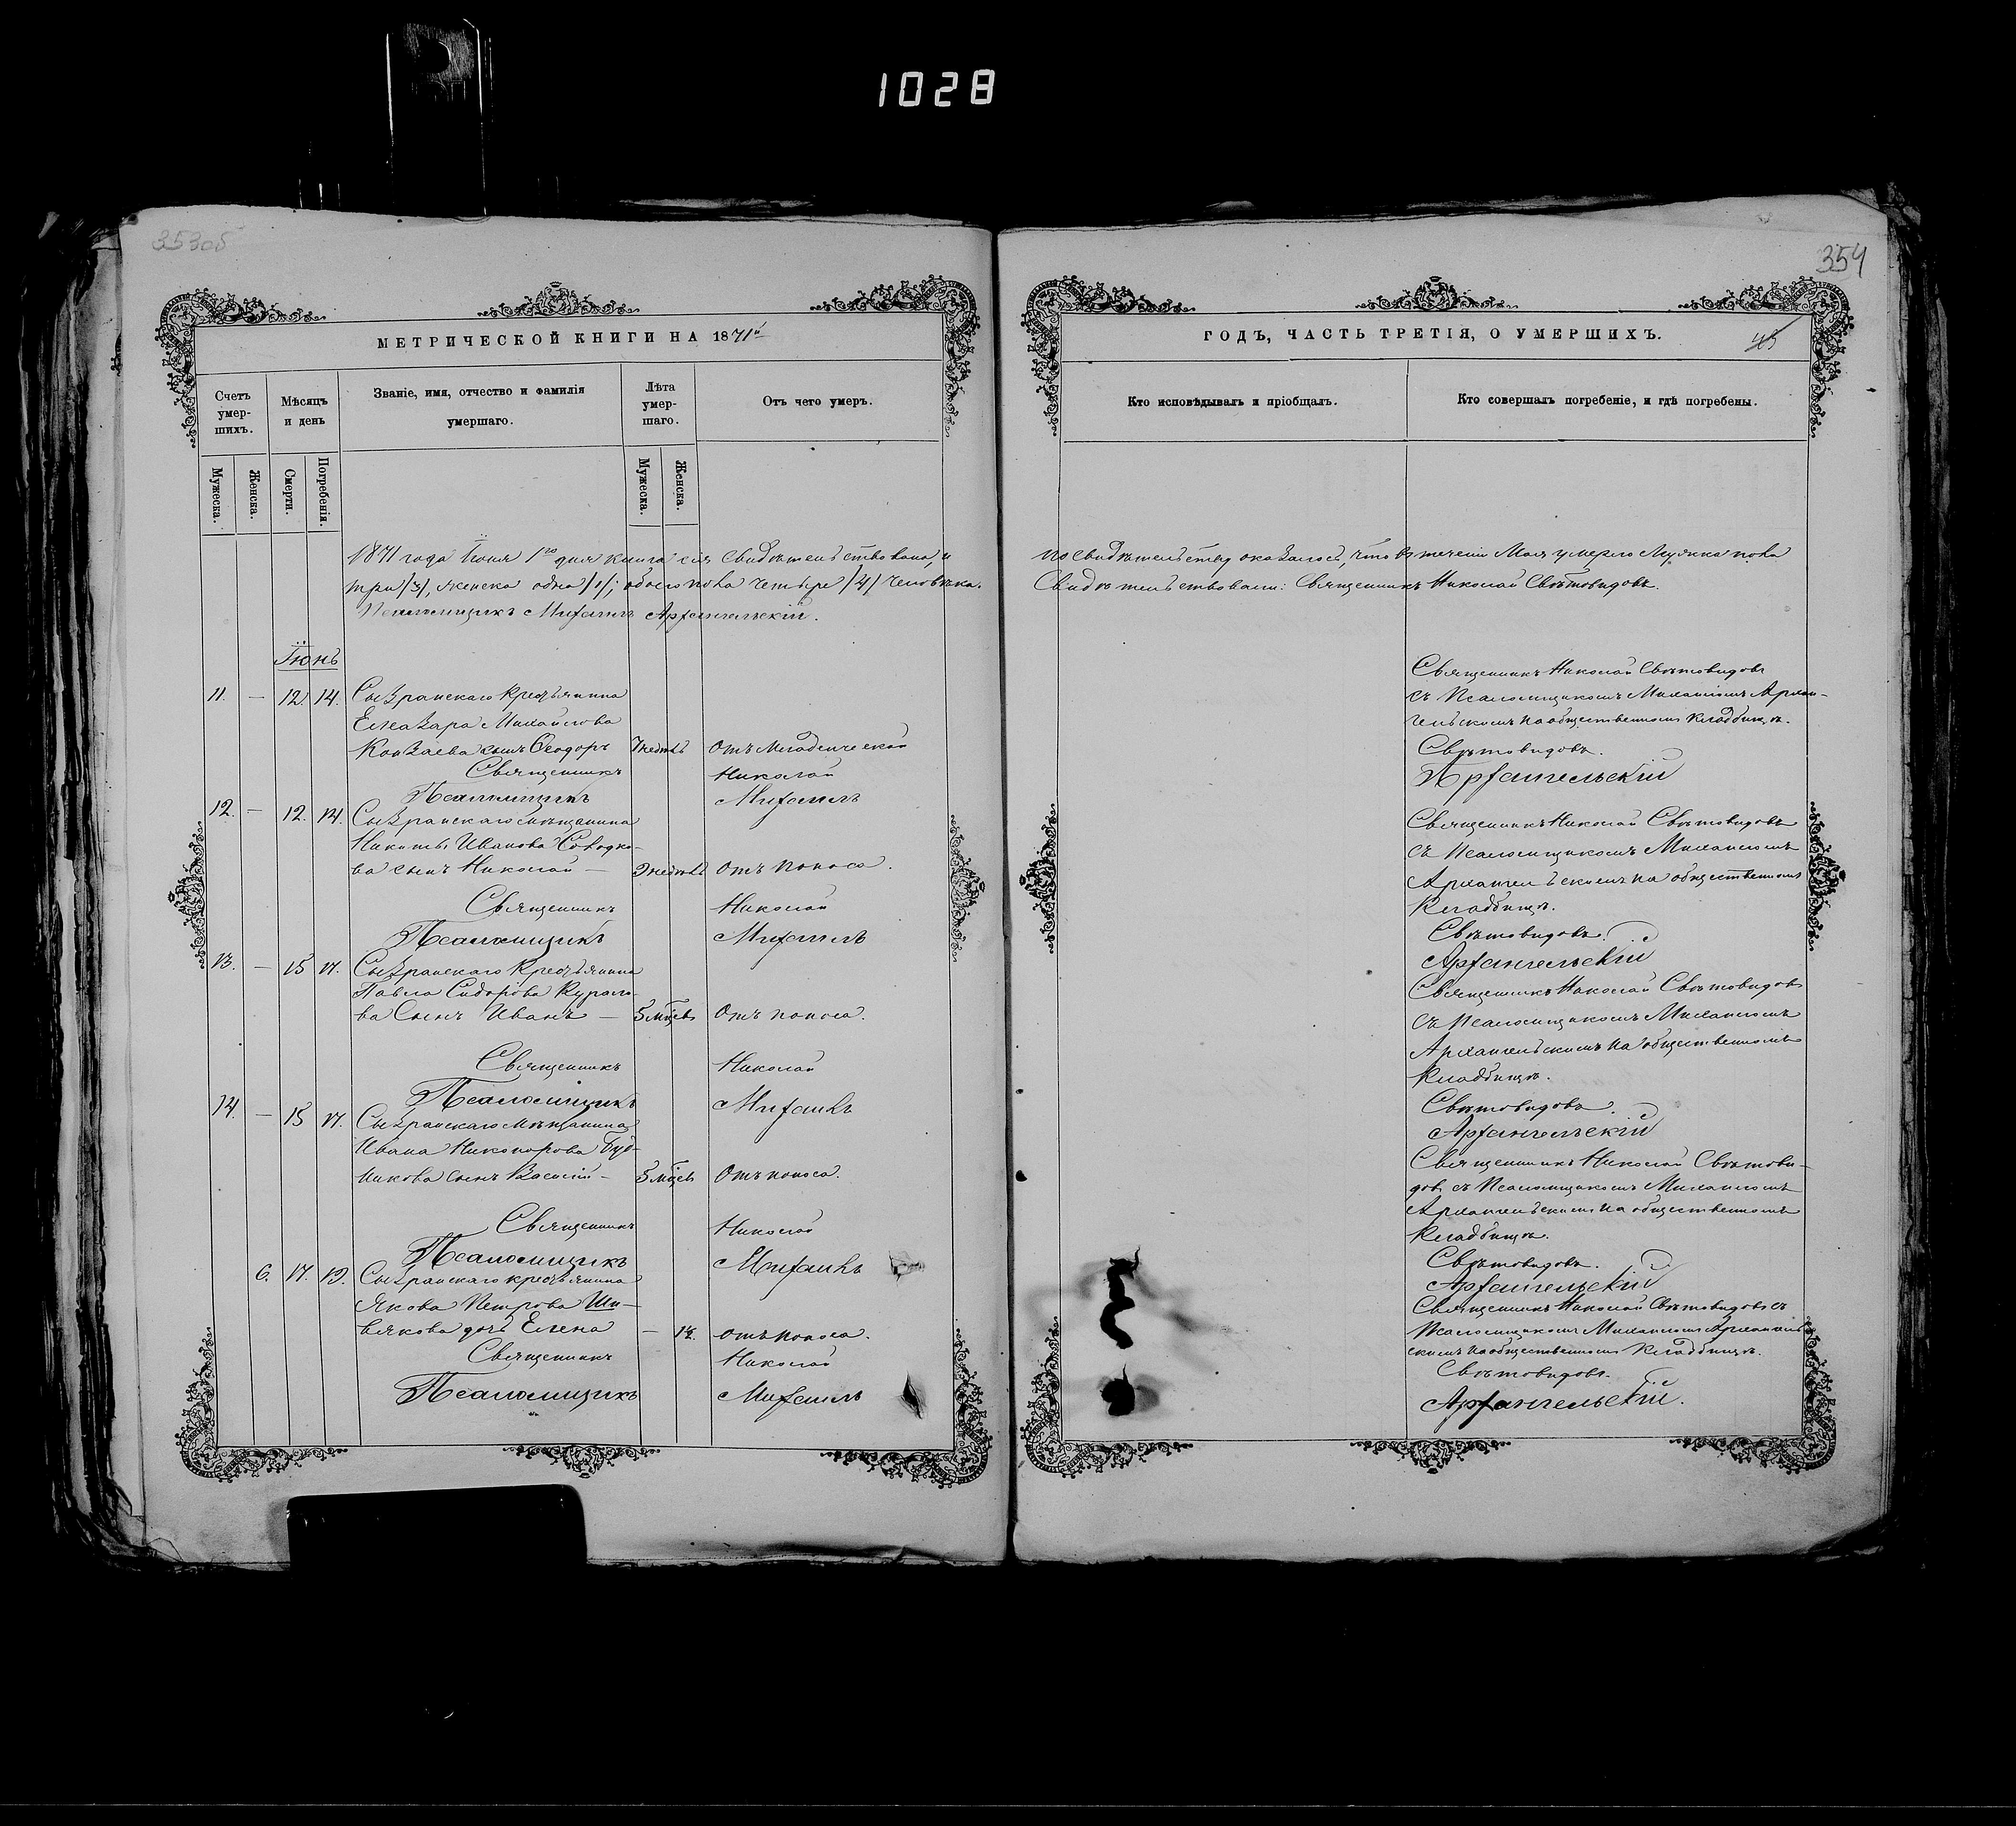 1028
353об
354
МЕТРИЧЕСКОЙ КНИГИ НА 1871й
ГОДЪ, ЧАСТЬ ТРЕТІЯ, О УМЕРШИХЪ.
45
Счетъ умер-шихъ.
Мѣсяцъ и день
Званіе, имя, отчество и фамилія умершаго.
Лѣта умер-шаго.
Отъ чего умеръ.
Кто исповѣдывалъ и пріобщалъ.
Кто совершалъ погребеніе, и гдѣ погребены.
Мужеска.
Женска.
Смерти.
Погребенія.
Мужеска.
Женска.
1871 года Іюня 1го дня книга сія свидѣтельствована, и
по свидѣтельству оказалось, что въ теченіи Мая умерло Мужска пола
три /3/, женска одна /1/; обоего пола четыре /4/ человѣка.
Свидѣтельствовали: Священникъ Николай Свѣтовидовъ.
Псаломщикъ Михаилъ Архангельскій.
Іюнь
11. — 12. 14. Сызранскаго крестьянина
Елеазара Михайлова
сынъ Ѳеодоръ
отъ младенческой
Священникъ Николай Свѣтовидовъ
съ Псаломщикомъ Михаиломъ Архан-
гельскимъ на общественномъ кладбищѣ.
Священникъ Николай Свѣтовидовъ.
Псаломщикъ Михаилъ Архангельскій
12. — 12. 14. Сызранскаго мѣщанина
Никиты Иванова
ва сынъ Николай —
отъ поноса.
Священникъ Николай Свѣтовидовъ
съ Псаломщикомъ Михаиломъ
Архангельскимъ на общественномъ
кладбищѣ.
Священникъ Николай Свѣтовидовъ.
Псаломщикъ Михаилъ Архангельскій
13. — 15 17. Сызранскаго крестьянина
Павла Сидорова
ва сынъ Иванъ — 5 мцевъ отъ поноса.
Священникъ Николай Свѣтовидовъ
съ Псаломщикомъ Михаиломъ
Архангельскимъ на общественномъ
кладбищѣ.
Священникъ Николай Свѣтовидовъ.
Псаломщикъ Михаилъ Архангельскій
14. — 15 17. Сызранскаго мѣщанина
Ивана Никонорова Буд-
никова сынъ Василій — 5 мцевъ отъ поноса.
Священникъ Николай Свѣтови-
довъ съ Псаломщикомъ Михаиломъ
Архангельскимъ на общественномъ
кладбищѣ.
Священникъ Николай Свѣтовидовъ.
Псаломщикъ Михаилъ Архангельскій
6. 17. 19. Сызранскаго крестьянина
Якова Петрова
дочь Елена — 14. отъ поноса.
Священникъ Николай Свѣтовидовъ съ
Псаломщикомъ Михаиломъ Архангель
скимъ на общественномъ кладбищѣ.
Священникъ Николай Свѣтовидовъ.
Псаломщикъ Михаилъ Архангельскій.